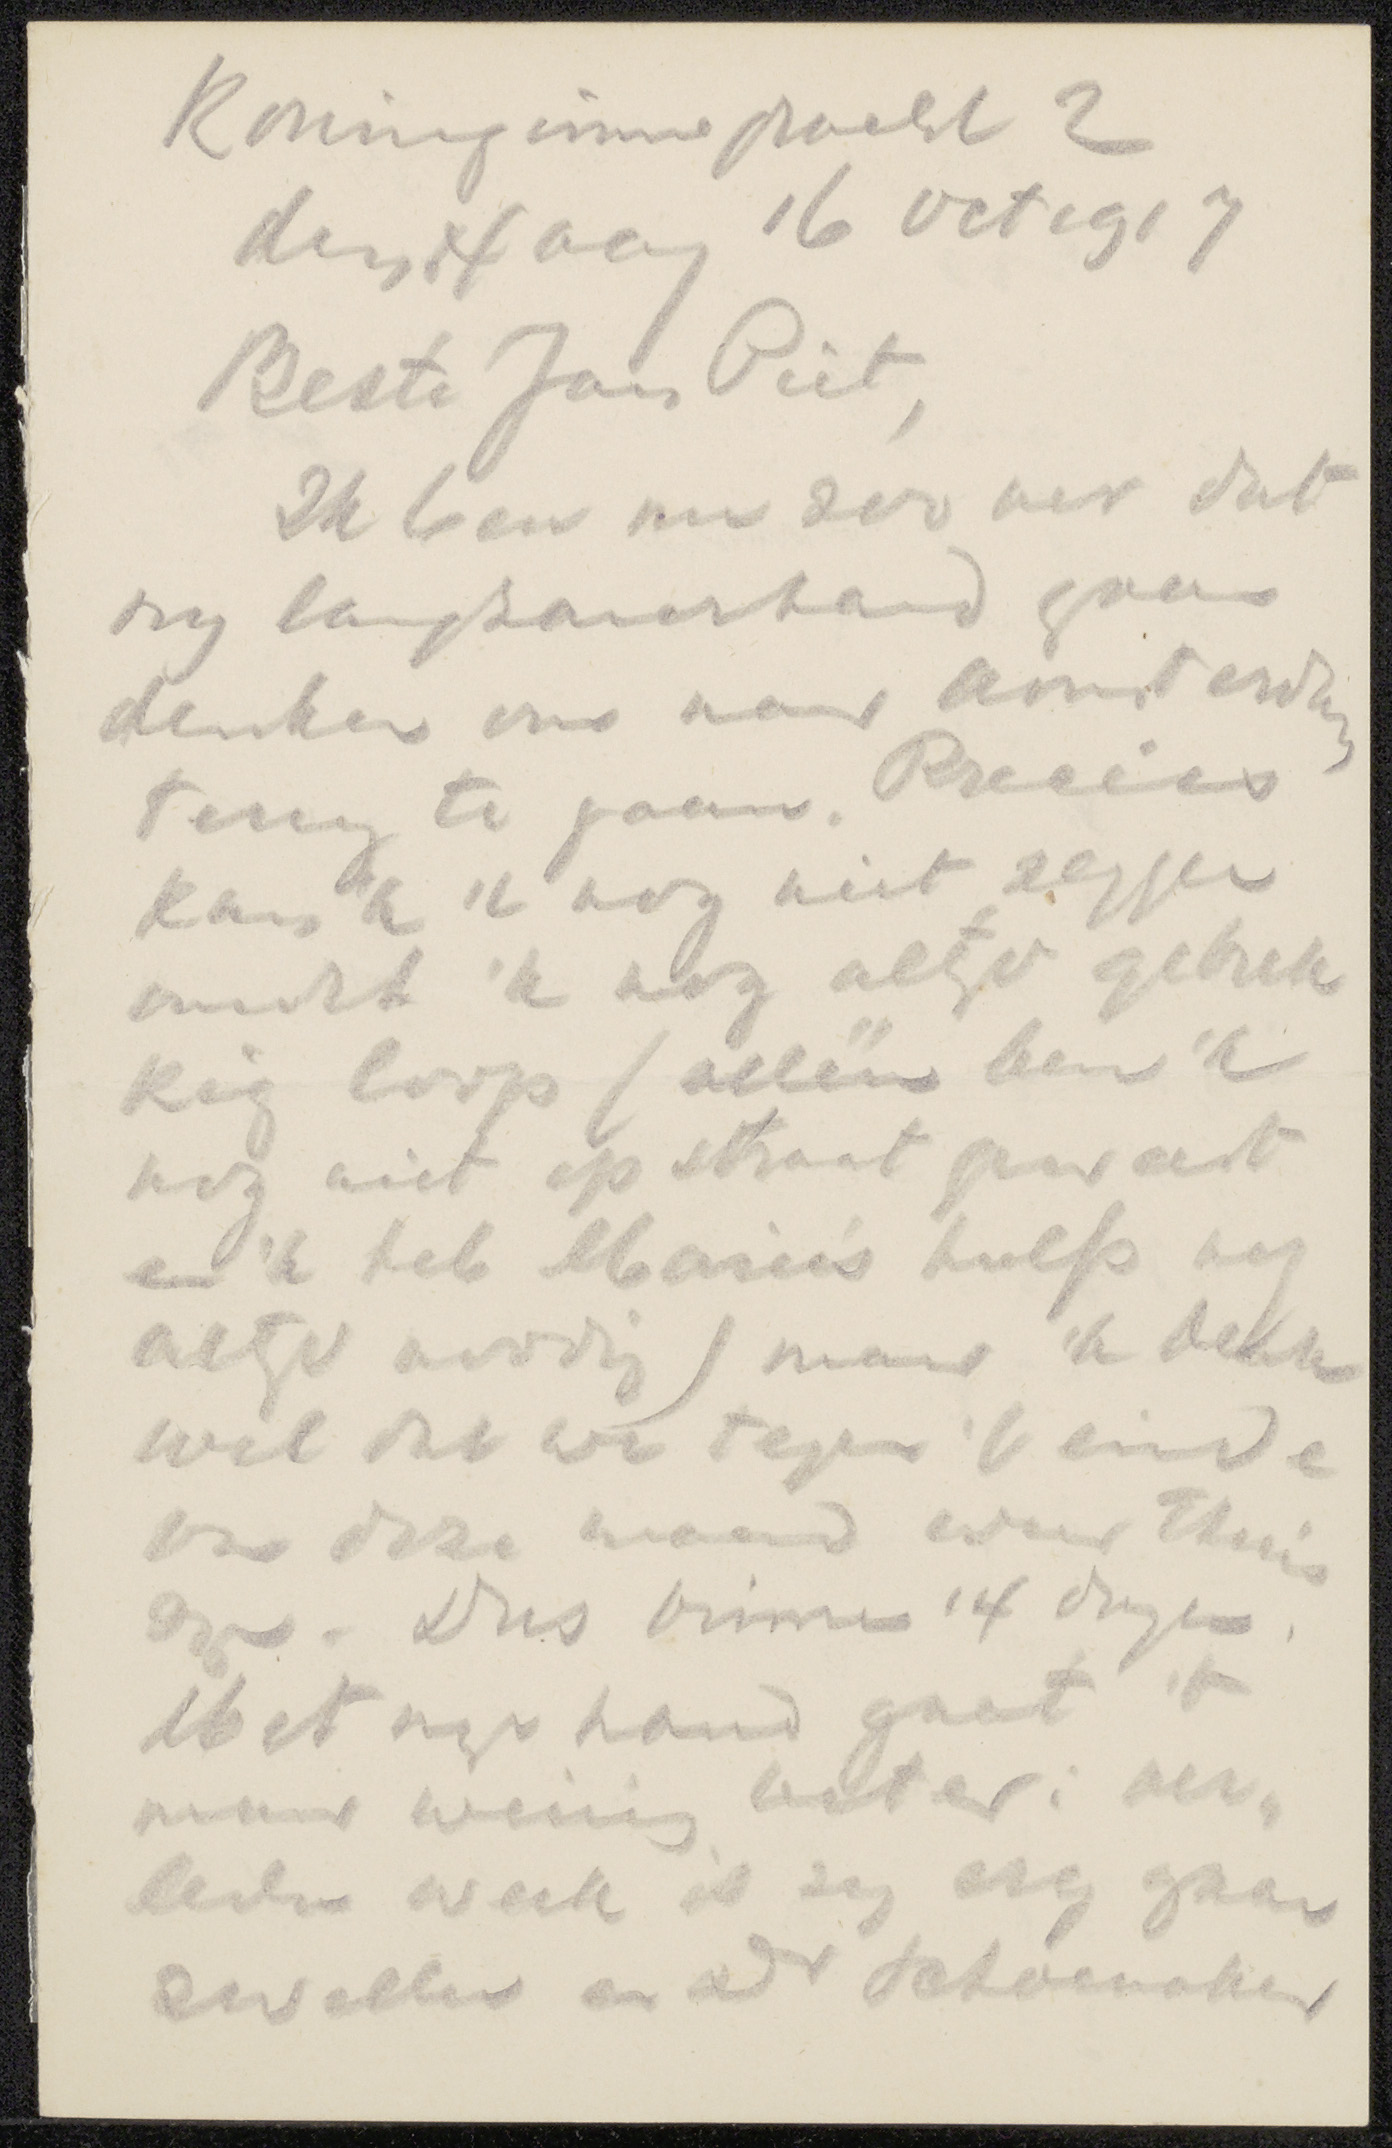 Koninginnegracht 2
den Haag 16 Oct 1917
Beste Jan Piet,
Ik ben nu zoo ver dat
wy langzamerhand gaan
denken ons naar Amsterdam
terug te gaan. Precies
kan 'k 't nog niet zeggen
omdat 'k nog altyd gebrek
kig loop (alleen ben 'k
nog niet op straat geweest
en 'k heb Marie's hulp nog
altyd noodig) maar 'k denk
wel dat we tegen 't einde
van deze maand weer thuis
zyn. Dus binnen 14 dagen.
Met myn hand gaat 't
maar weinig beter: ver„
leden week is zy erg gaan
zwellen en Dr Schoemaker